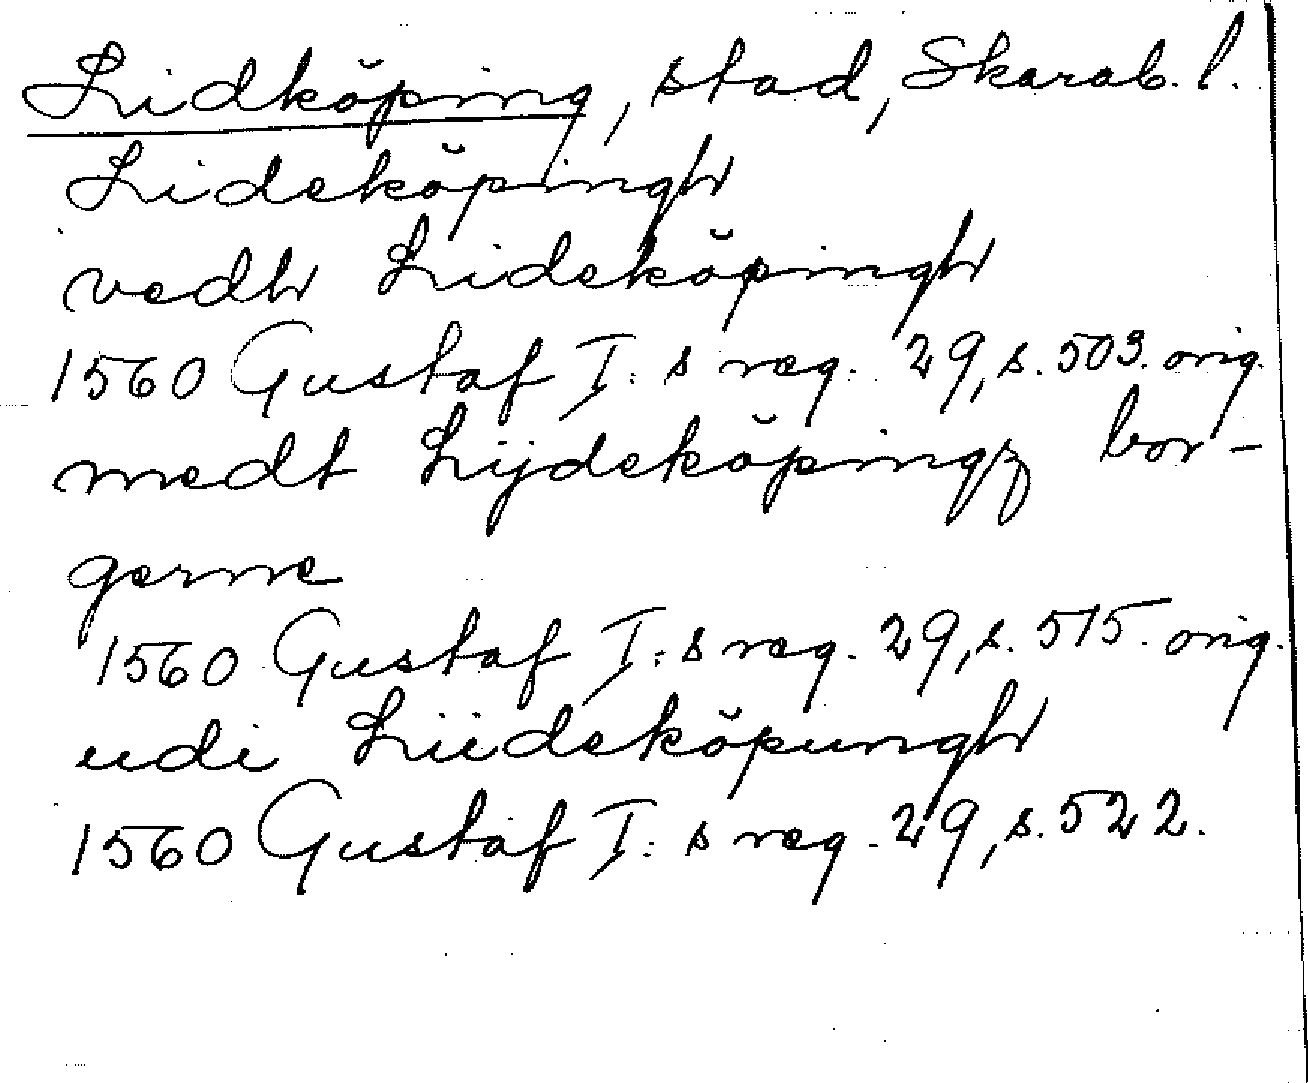 Lidköping, stad, Skarab. l.
Lideköpingh
vedh Lideköpingh
1560 Gustaf I:s reg. 29, s. 503. orig.
medt Lijdeköpingz bor-
gerne
1560 Gustaf I:s reg. 29, s. 515. orig.
udi Liideköpungh
1560 Gustaf I:s reg. 29, s. 522.